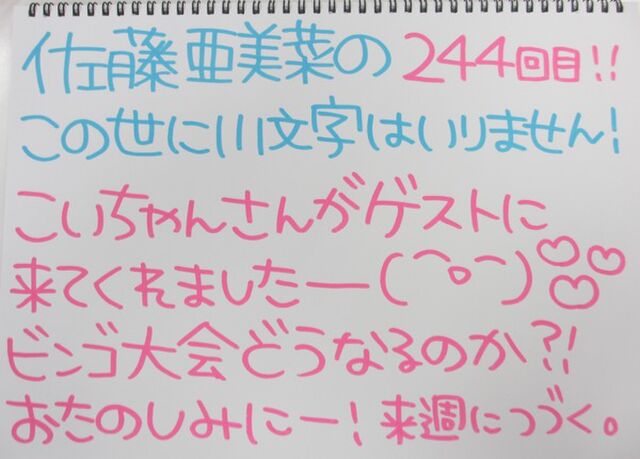 佐藤亜美菜の244回目!!
この世に小文字はいりません!
こいちゃんさんがゲストに
来てくれましたー(⌒o⌒)♡♡♡
ビンゴ大会どうなるのか?!
おたのしみにー!来週につづく。